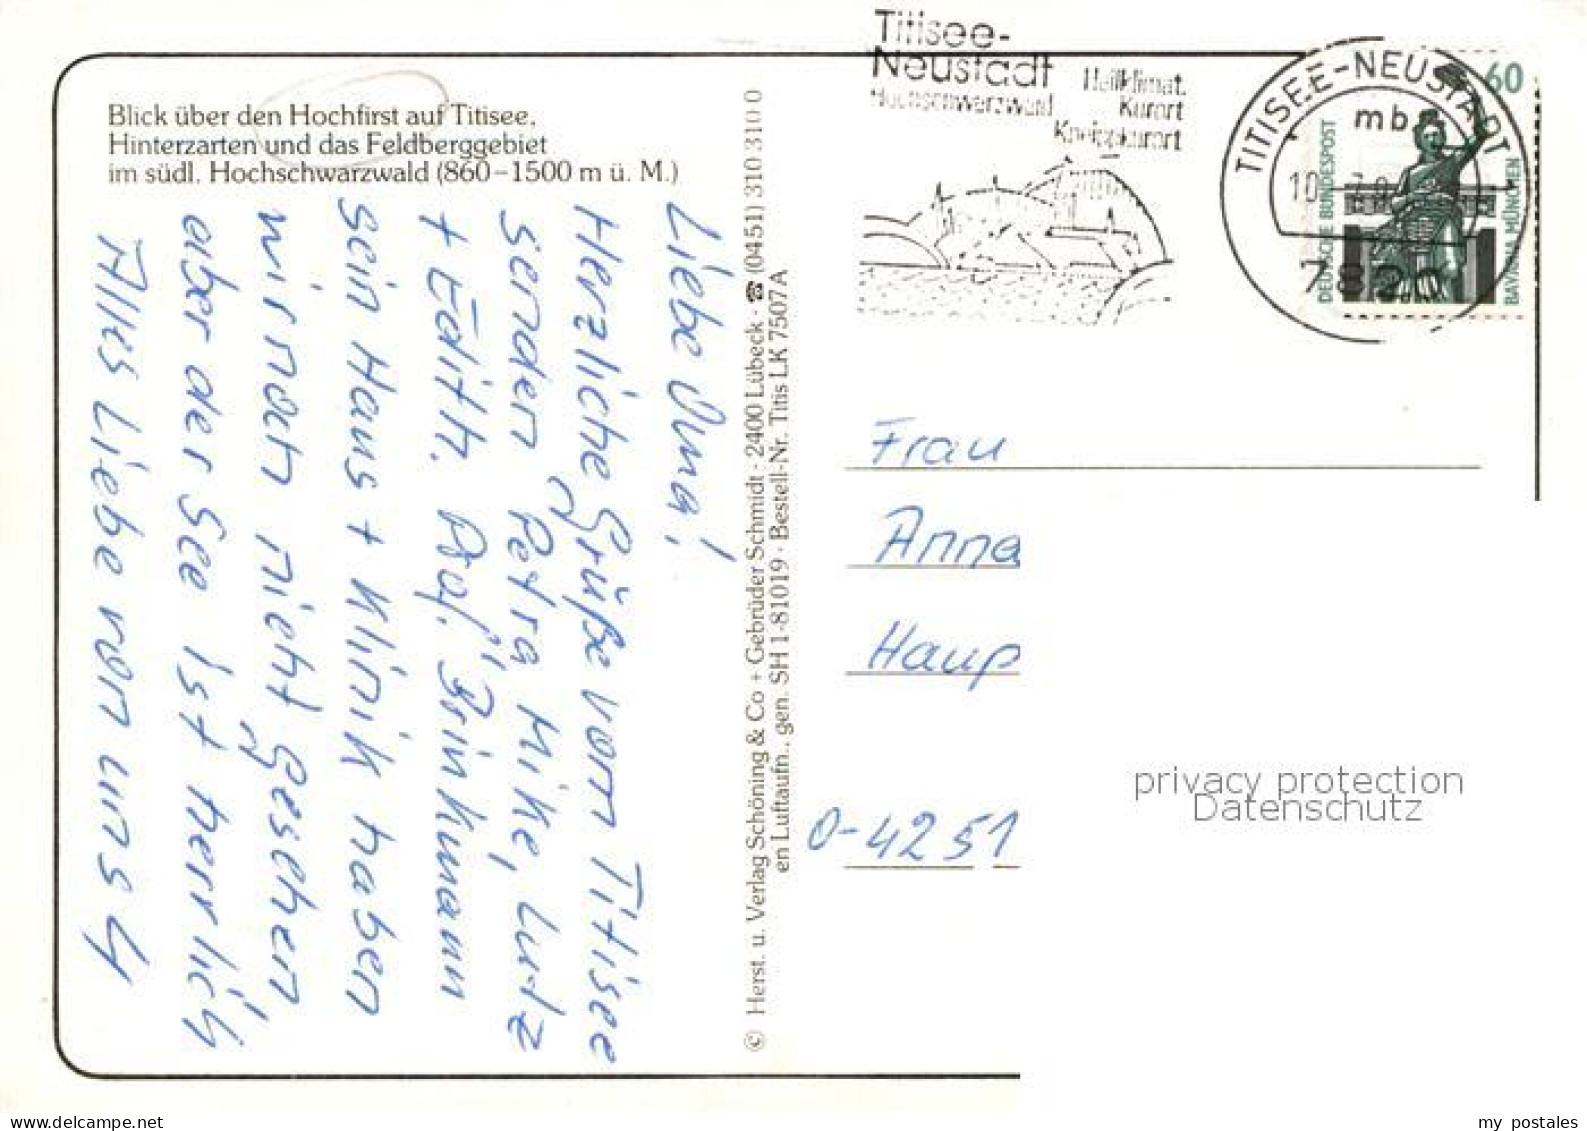 Blick über den Hochfirst auf Titisee,
Hinterzarten und das Feldberggebiet
im südl. Hochschwarzwald (860–1500 m ü. M.)
Liebe Oma!
Herzliche Grüße vom Titisee
senden Petra Mike, Lutz
+ Edith. Prof. "Brinkmann
sein Haus + Klinik haben
wir noch nicht gesehen
aber der See ist herrlich
Alles Liebe von uns 4
© Herst. u. Verlag Schöning & Co + Gebrüder Schmidt · 2400 Lübeck · ☎ (0451) 310 310 0
en Luftaufn., gen. SH 1-81019 · Bestell-Nr. Titis LK 7507 A
Titisee-
Neustadt
Hochschwarzwald
Heilklimat.
Kurort
Kneippkurort
TITISEE-NEUSTADT
mb
10.
7820
60
DEUTSCHE BUNDESPOST
BAVARIA MÜNCHEN
Frau
Anna
Haup
O-4251
privacy protection
Datenschutz
delcampe.net
my postales